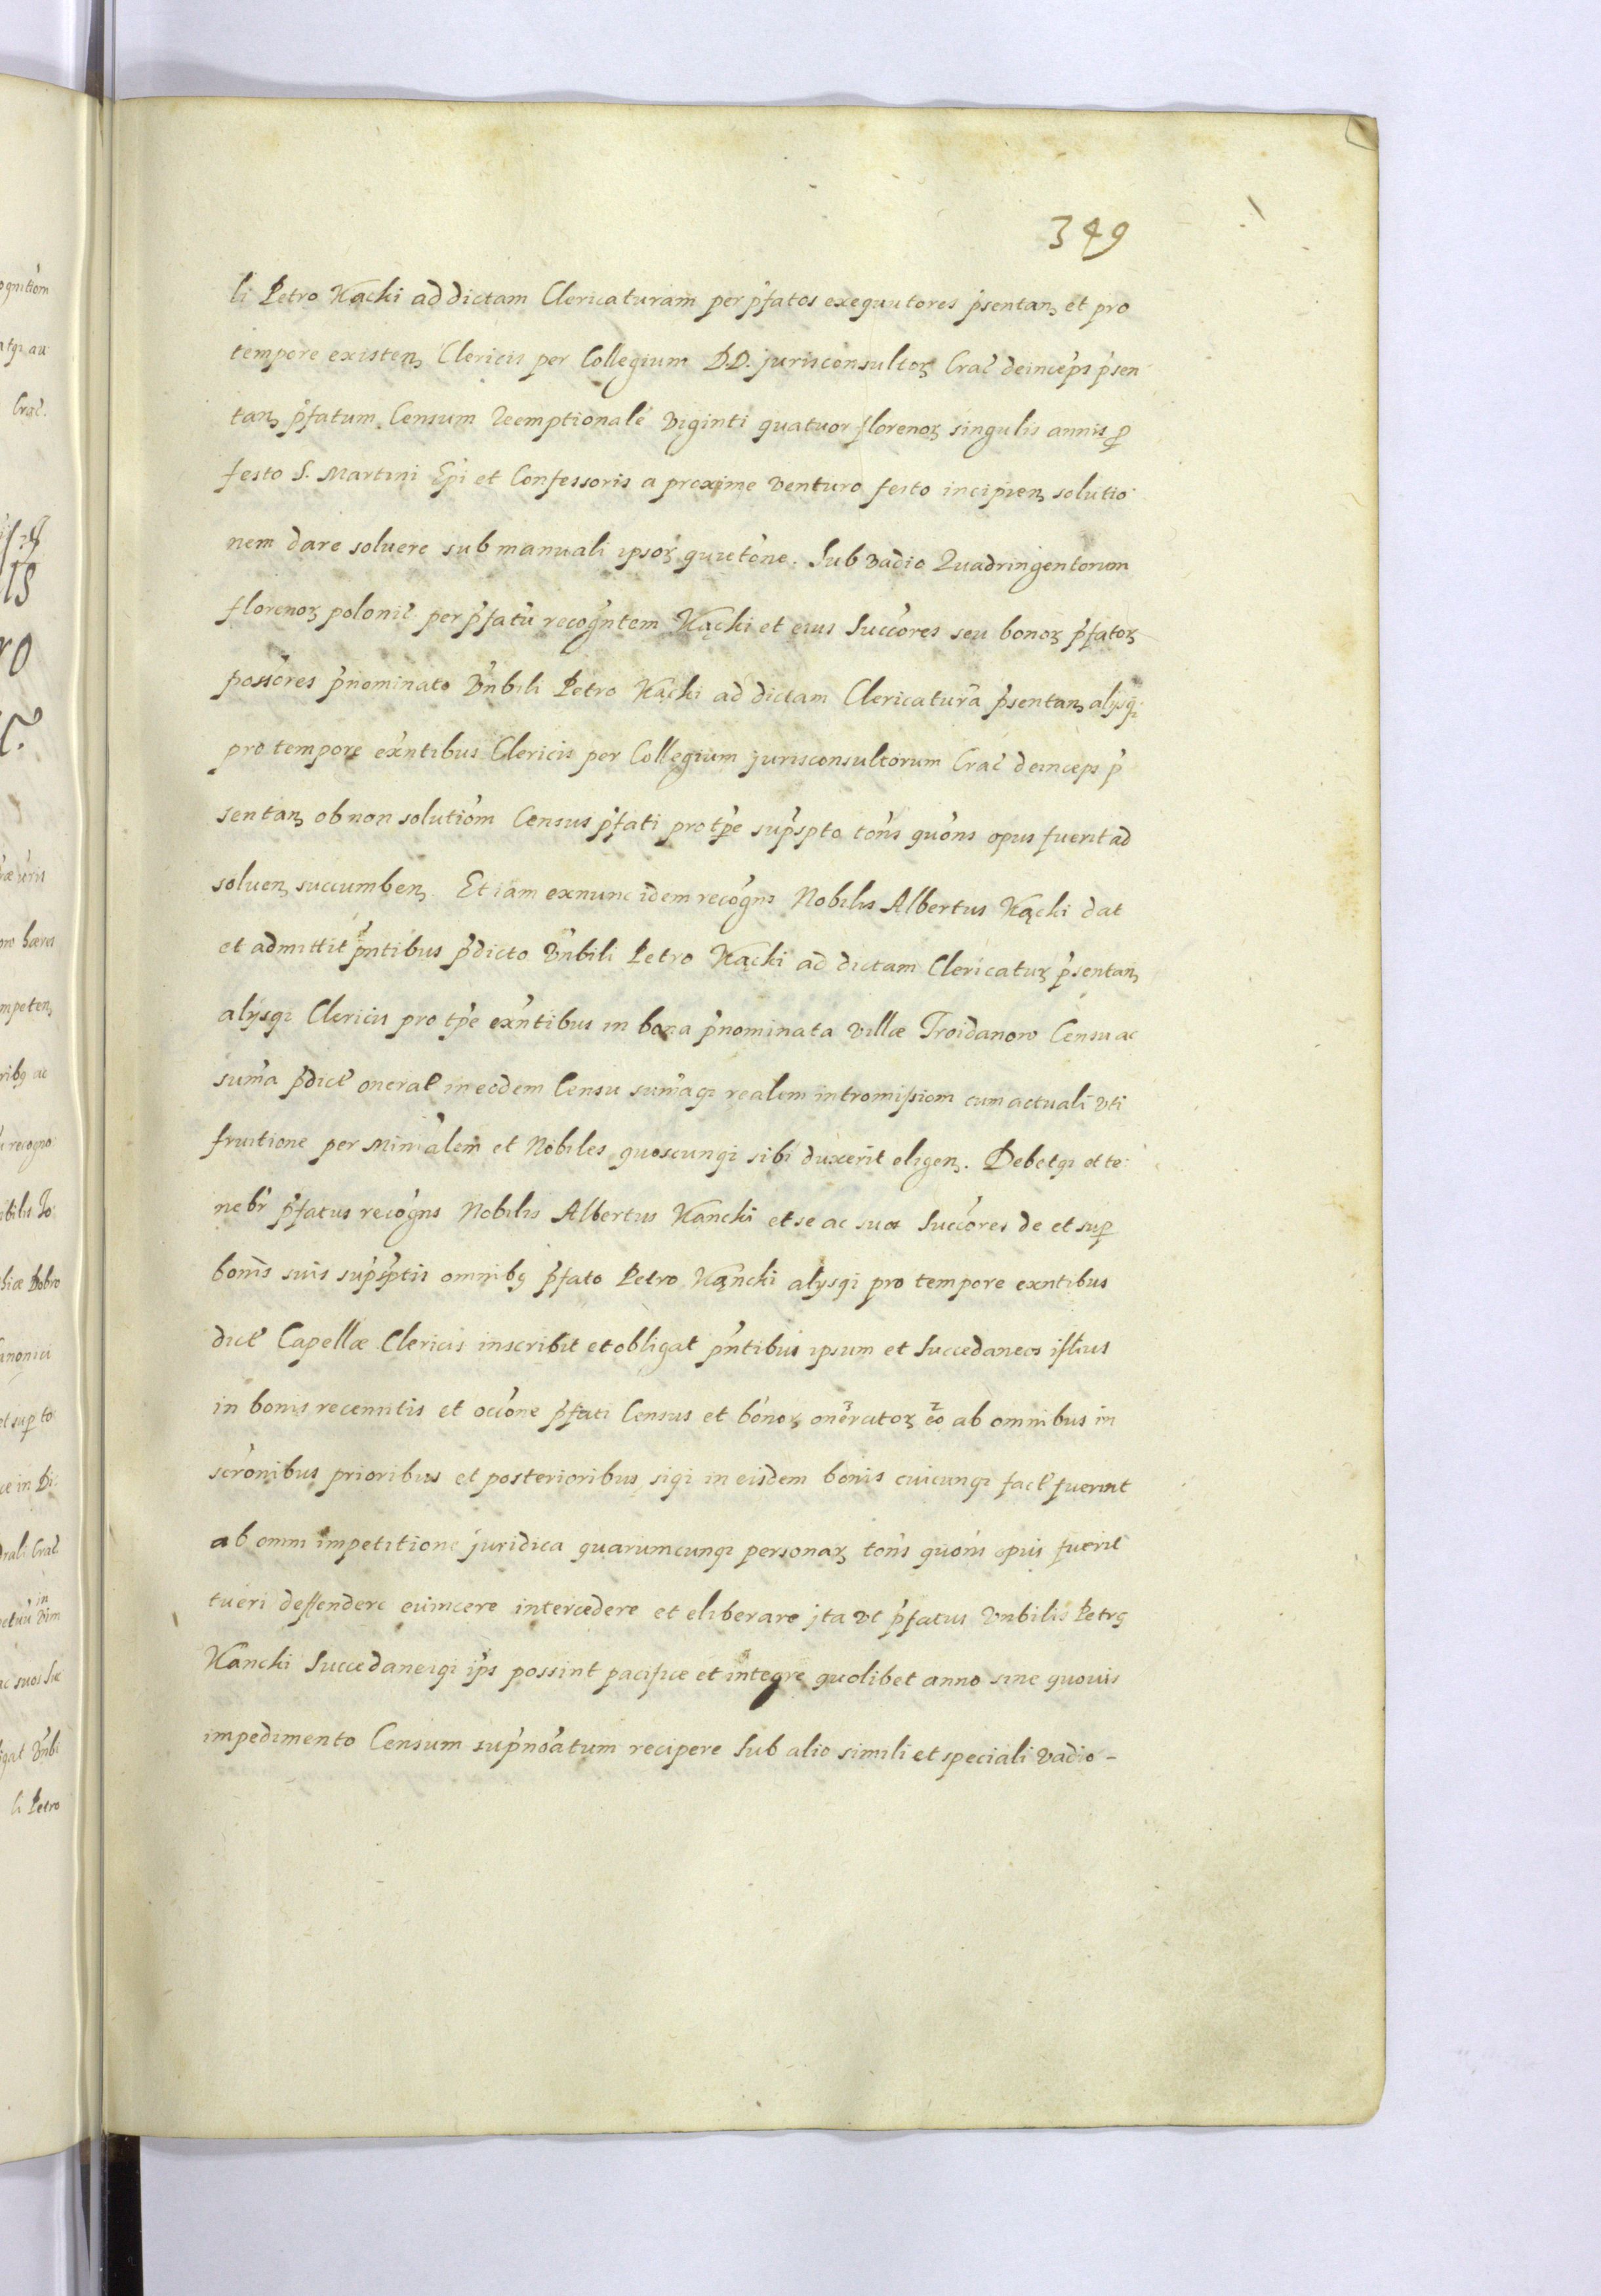 349
li Petro Kącki ad dictam Clericaturam per p̃fatos exequutores p̃sentan̨ et pro
tempore existen̨ Clericis per Collegium DD. jurisconsultoꝝ Crac̃ deinceps p̃sen
tan̨ p̃fatum Censum Reemptionalẽ viginti quatuor florenoꝝ singulis annis ꝓ
festo S. Martini Ep̃i et Confessoris a proxime venturo festo incipien̨ solutio
nem dare soluere sub manuali ipsoꝝ quietõne. Sub vadio Quadringentorum
florenoꝝ polonic̃ per p̃fatũ recogñtem Kącki et eius Succõres seu bonoꝝ p̃fatoꝝ
possõres p̃nominato Vñbili Petro Kącki ad dictam Clericaturã p̃sentan̨ alijsqꝫ
pro tempore exñtibus Clericis per Collegium jurisconsultorum Crac̃ deinceps p̃
sentan̨ ob non solutiõm Census p̃fati pro tp̃e sup̃spto tõns quõns opus fuerit ad
soluen̨ succumben̨. Et iam exnunc idem recogñs Nobilis Albertus Kącki dat
et admittit p̃ntibus p̃dicto Vñbili Petro Kącki ad dictam Clericatuꝝ p̃sentan̨
alijsqꝫ Clericis pro tp̃e exñtibus in bona p̃nominata villæ Troidanow Censu ac
sum̃a p̃dict̃ onerat̃ in eodem Censu sum̃aqꝫ realem intromissiom cum actuali vti
fruitione per Ministãlem et Nobiles quoscunqꝫ sibi duxerit eligen̨. Debetqꝫ et te
nebr̃ p̃fatus recogñs Nobilis Albertus Kancki et se ac suos Succõres de et suꝑ
bonis suis sup̃sptis omnibꝰ p̃fato Petro Kąncki alijsqꝫ pro tempore exntibus
dict̃ Capellæ Clericis inscribit et obligat p̃ntibus ipsum et Succedaneos istius
in bonis recennitis et occõne p̃fati Census et bonoꝝ oneratoꝝ eo ab omnibus in
scrõnibus prioribus et posterioribus siqꝫ in eisdem bonis cuicunqꝫ fact̃ fuerint
ab omni impetitione juridica quarumcunqꝫ personaꝝ tõns quõns opus fuerit
tueri deffendere euincere intercedere et eliberare jta vt p̃fatus Vnbilis Petrꝰ
Kancki Succedaneiqꝫ ip̃s possint pacifice et integre quolibet anno sine quouis
impedimento Censum sup̃noãtum recipere Sub alio simili et speciali vadio -